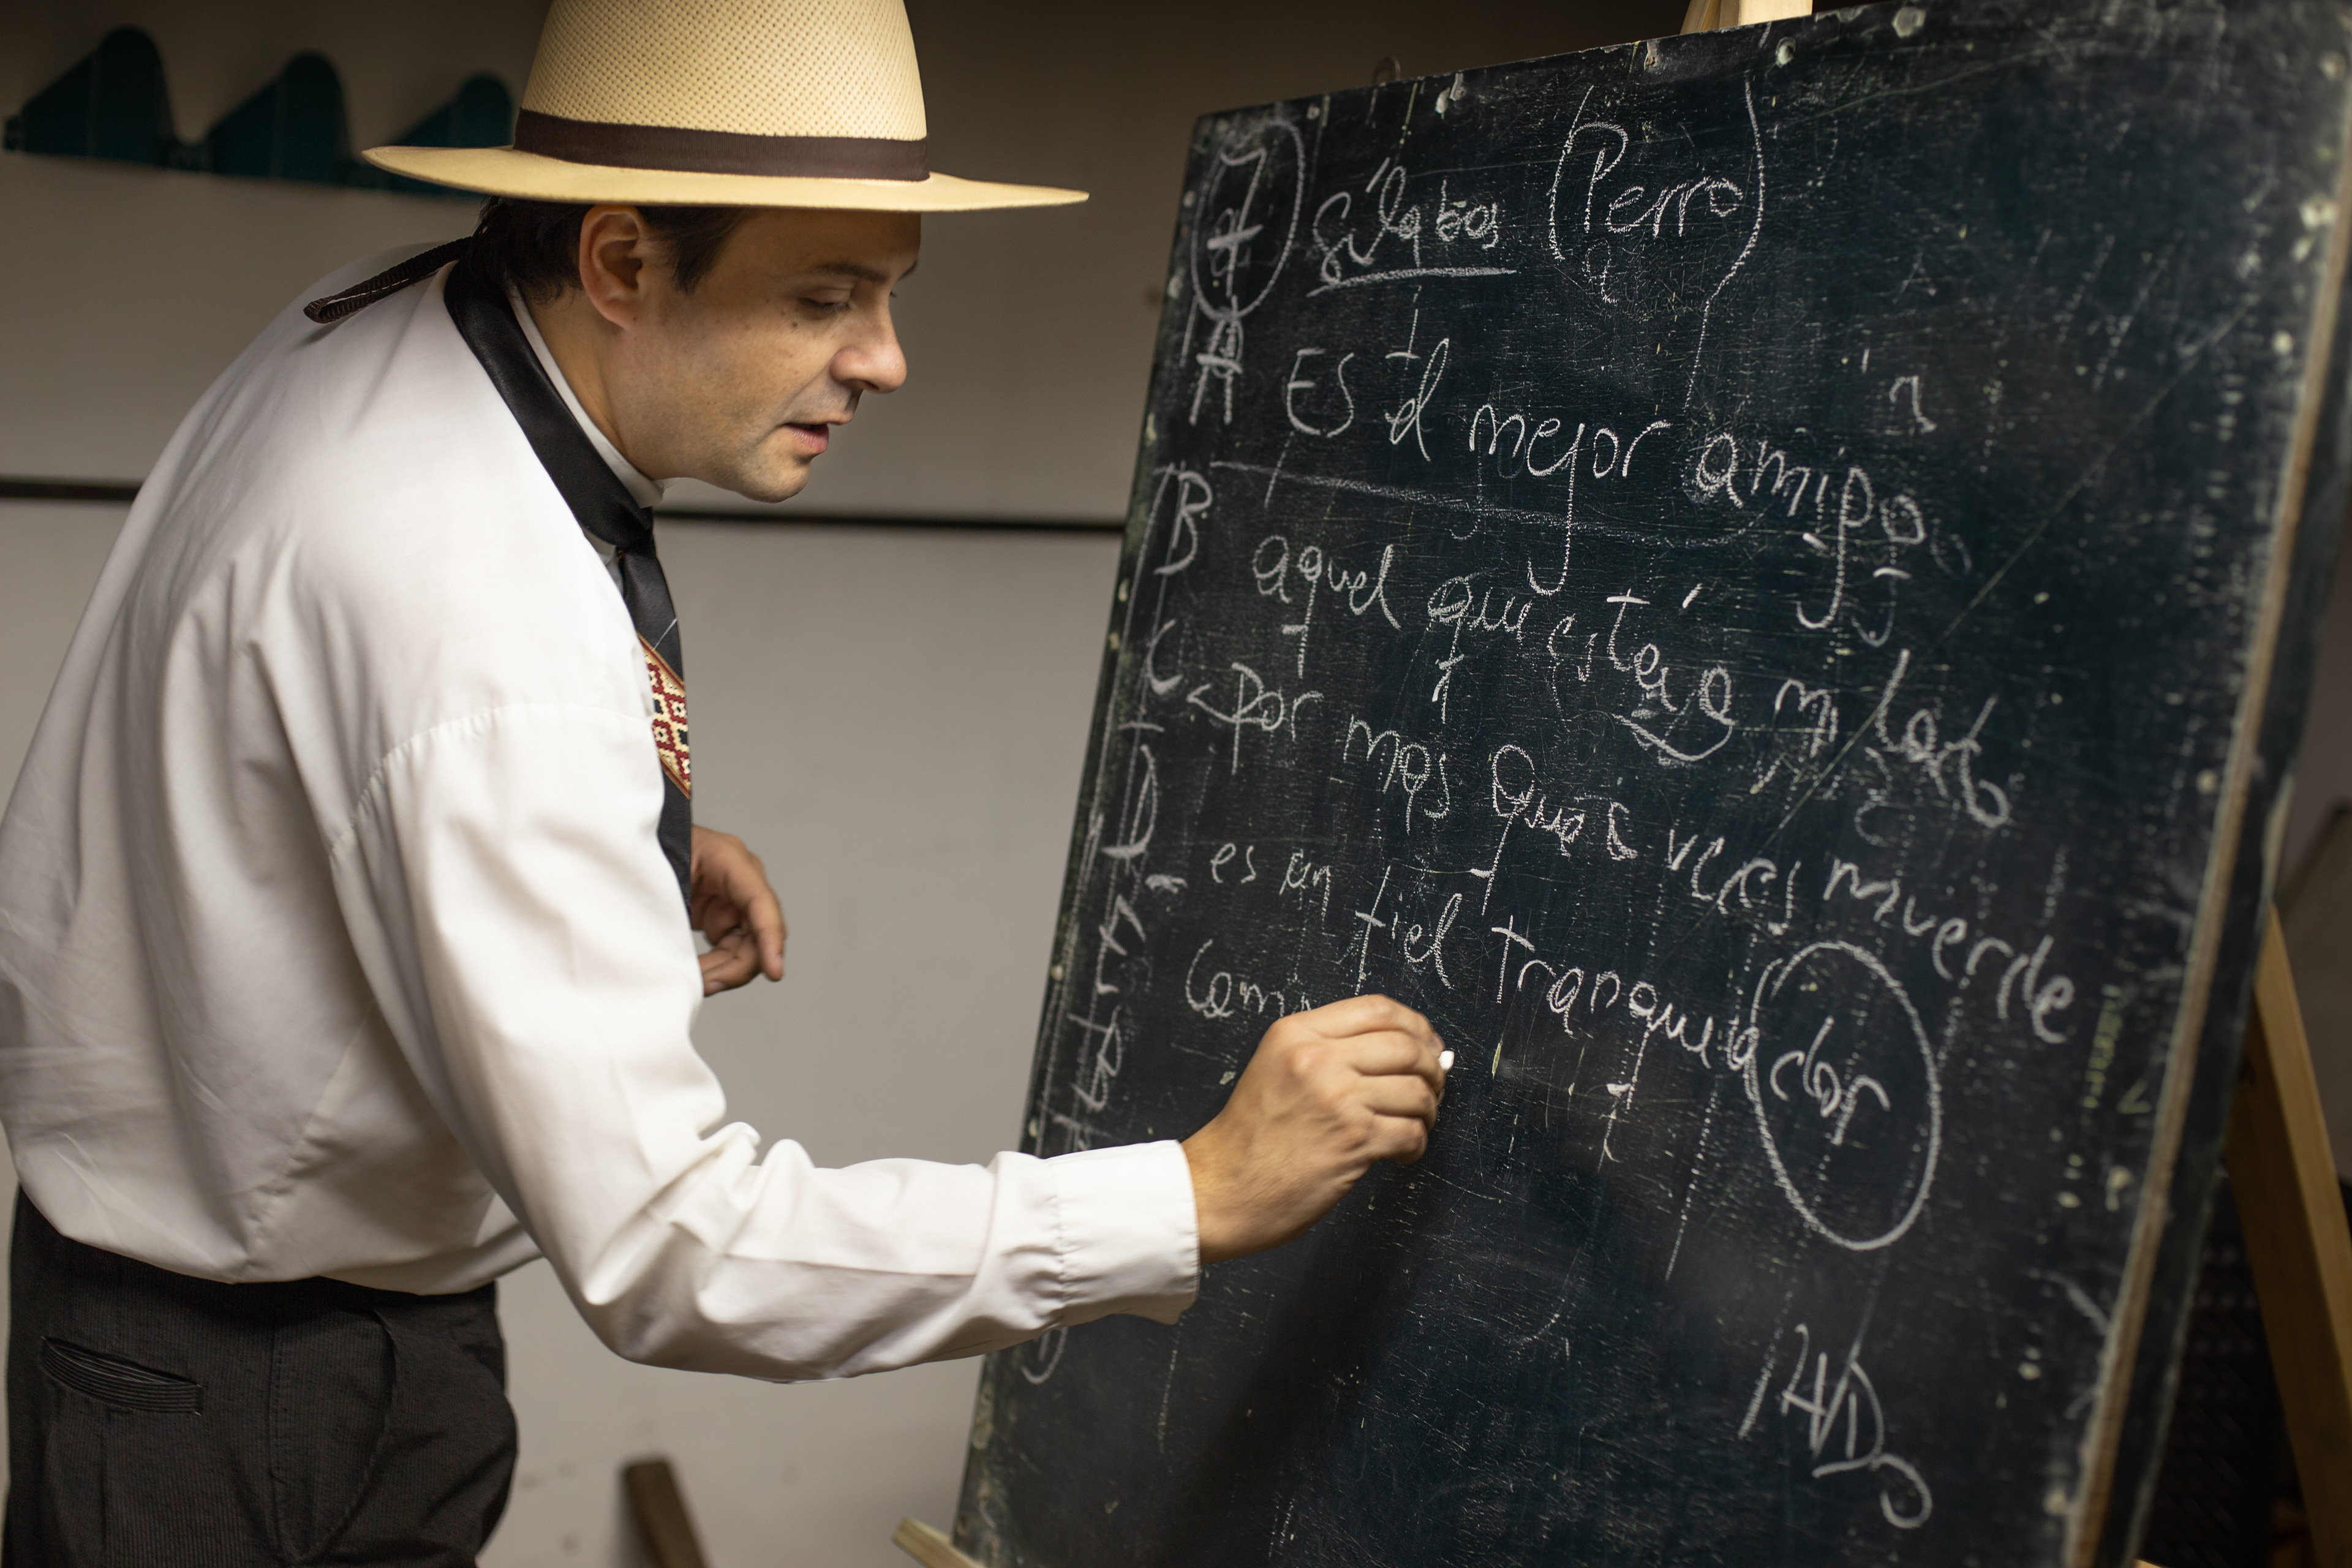 7 sílabas (Perro)
A Es el mejor amigo
B aquel que está a mi lado
C por mas que a veces muerde
D es un fiel tranquilador
Com